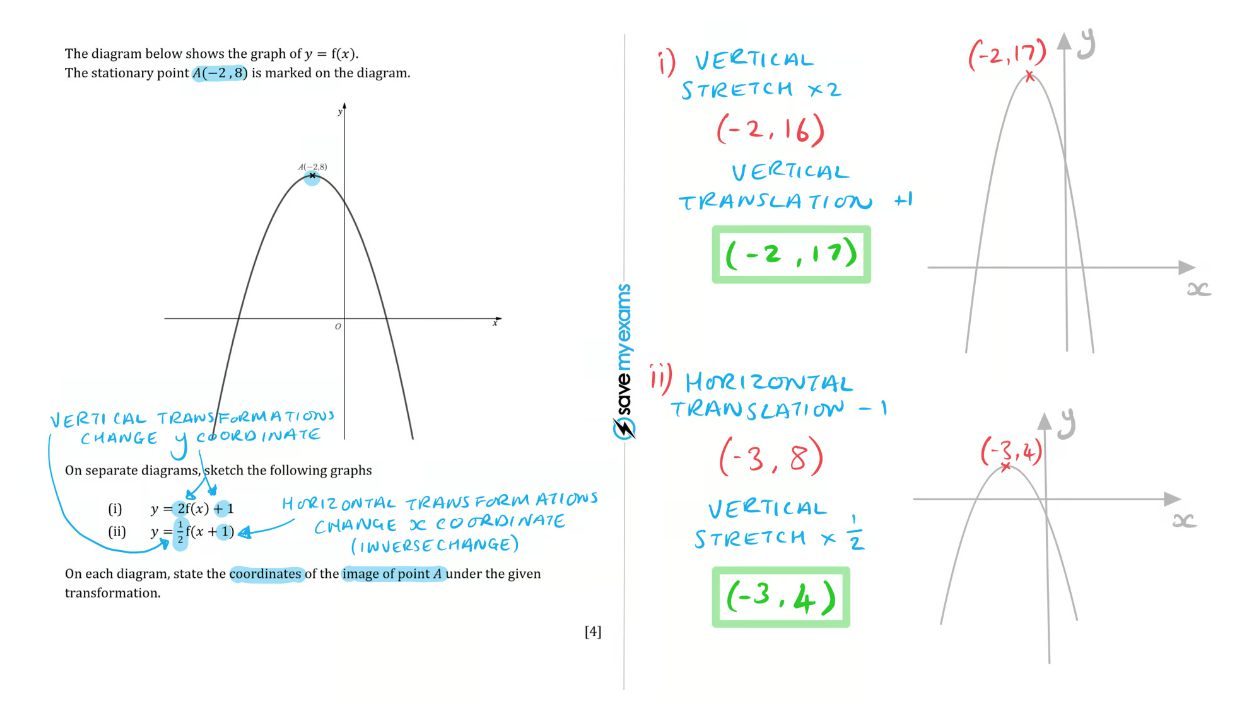 The diagram below shows the graph of y = f(x).
The stationary point A(−2 , 8) is marked on the diagram.
y
A(−2,8)
O
x
VERTICAL TRANSFORMATIONS
CHANGE y COORDINATE
On separate diagrams, sketch the following graphs
(i) y = 2f(x) + 1
(ii) y = 1/2 f(x + 1)
HORIZONTAL TRANSFORMATIONS
CHANGE x COORDINATE
(INVERSE CHANGE)
On each diagram, state the coordinates of the image of point A under the given
transformation.
[4]
save my exams
i) VERTICAL
STRETCH ×2
(-2, 16)
VERTICAL
TRANSLATION +1
(-2, 17)
(-2, 17)
y
x
ii) HORIZONTAL
TRANSLATION -1
(-3, 8)
VERTICAL
STRETCH × 1/2
(-3, 4)
(-3, 4)
y
x